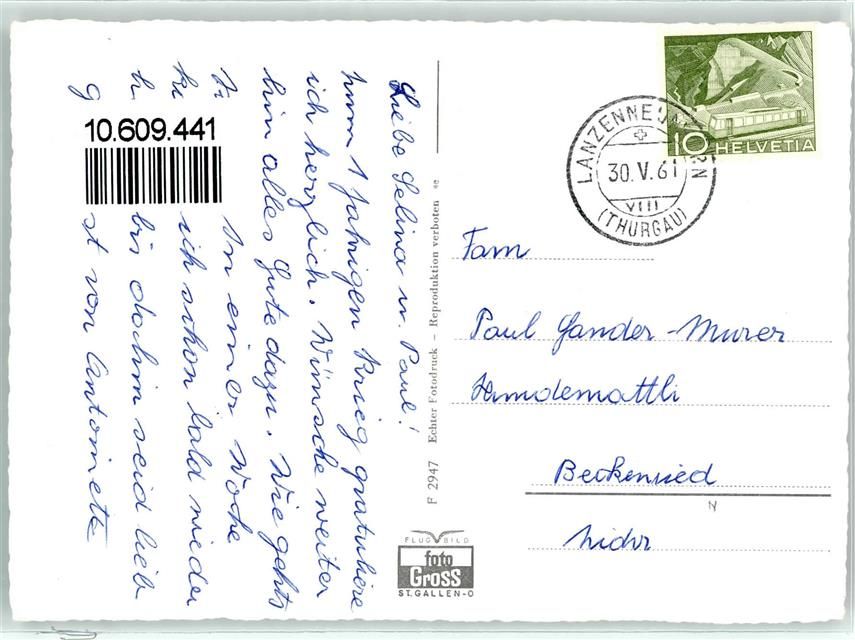 Liebe Selina u. Paul!
zum 1 jährigen Krieg gratuliere
ich herzlich. Wünsche weiter
hin alles Gute dazu. Wie gehts
In einer Woche
ich schon bald wieder
bis dahin seid lieb
st von Antoinette
10.609.441
F 2947 Echter Fotodruck – Reproduktion verboten
FLUGBILD
foto
Gross
ST. GALLEN-O
10 HELVETIA
LANZENNEUNFORN
30.V.61
VIII
(THURGAU)
Fam
Paul Gander-Murer
Beckenried
Nidw